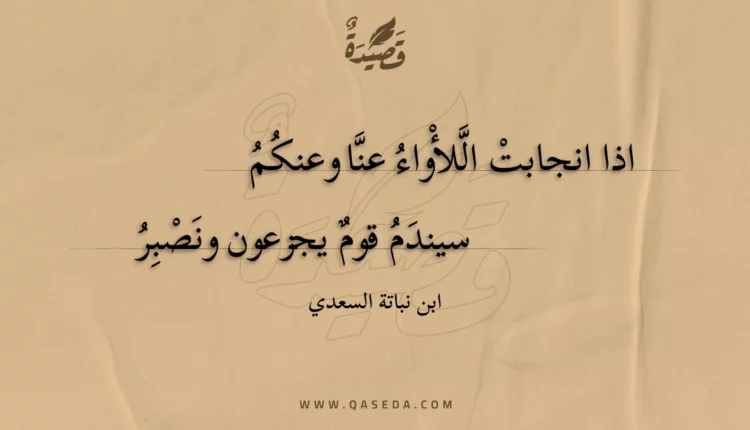 قَصِيْدَةٌ
اذا انجابتْ الَّلأْواءُ عنَّا وعنكُمُ
سيندَمُ قومٌ يجزعون ونَصْبِرُ
ابن نباتة السعدي
WWW.QASEDA.COM